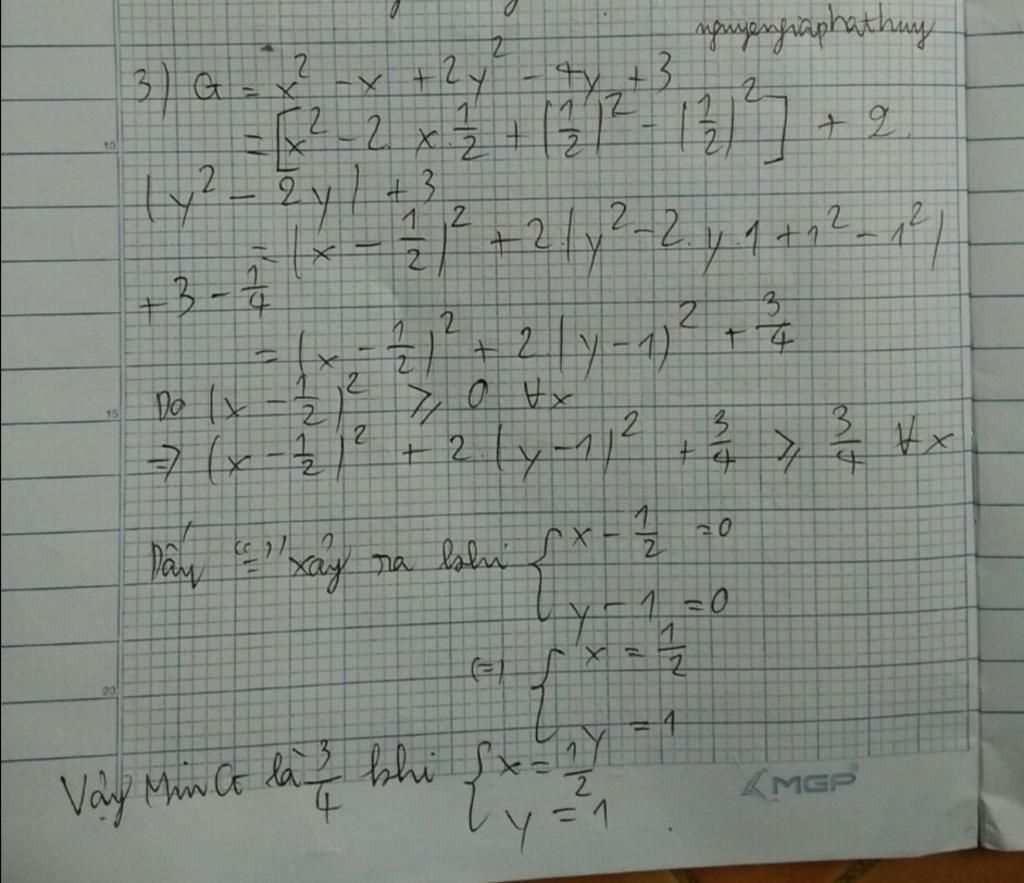 nguyengiaphathuy
10
3) G = x² - x + 2y² - 4y + 3
= [x² - 2 x.1/2 + (1/2)² - (1/2)²] + 2.
(y² - 2y) + 3
= (x - 1/2)² + 2.(y² - 2.y.1 + 1² - 1²)
+ 3 - 1/4
= (x - 1/2)² + 2.(y - 1)² + 3/4
15
Do (x - 1/2)² ⩾ 0 ∀x
⇒ (x - 1/2)² + 2.(y - 1)² + 3/4 ⩾ 3/4 ∀x
Dấu "=" xảy ra khi { x - 1/2 = 0
y - 1 = 0
(=) { x = 1/2
20
y = 1
Vậy Min G là 3/4 khi { x = 1/2
y = 1
MGP